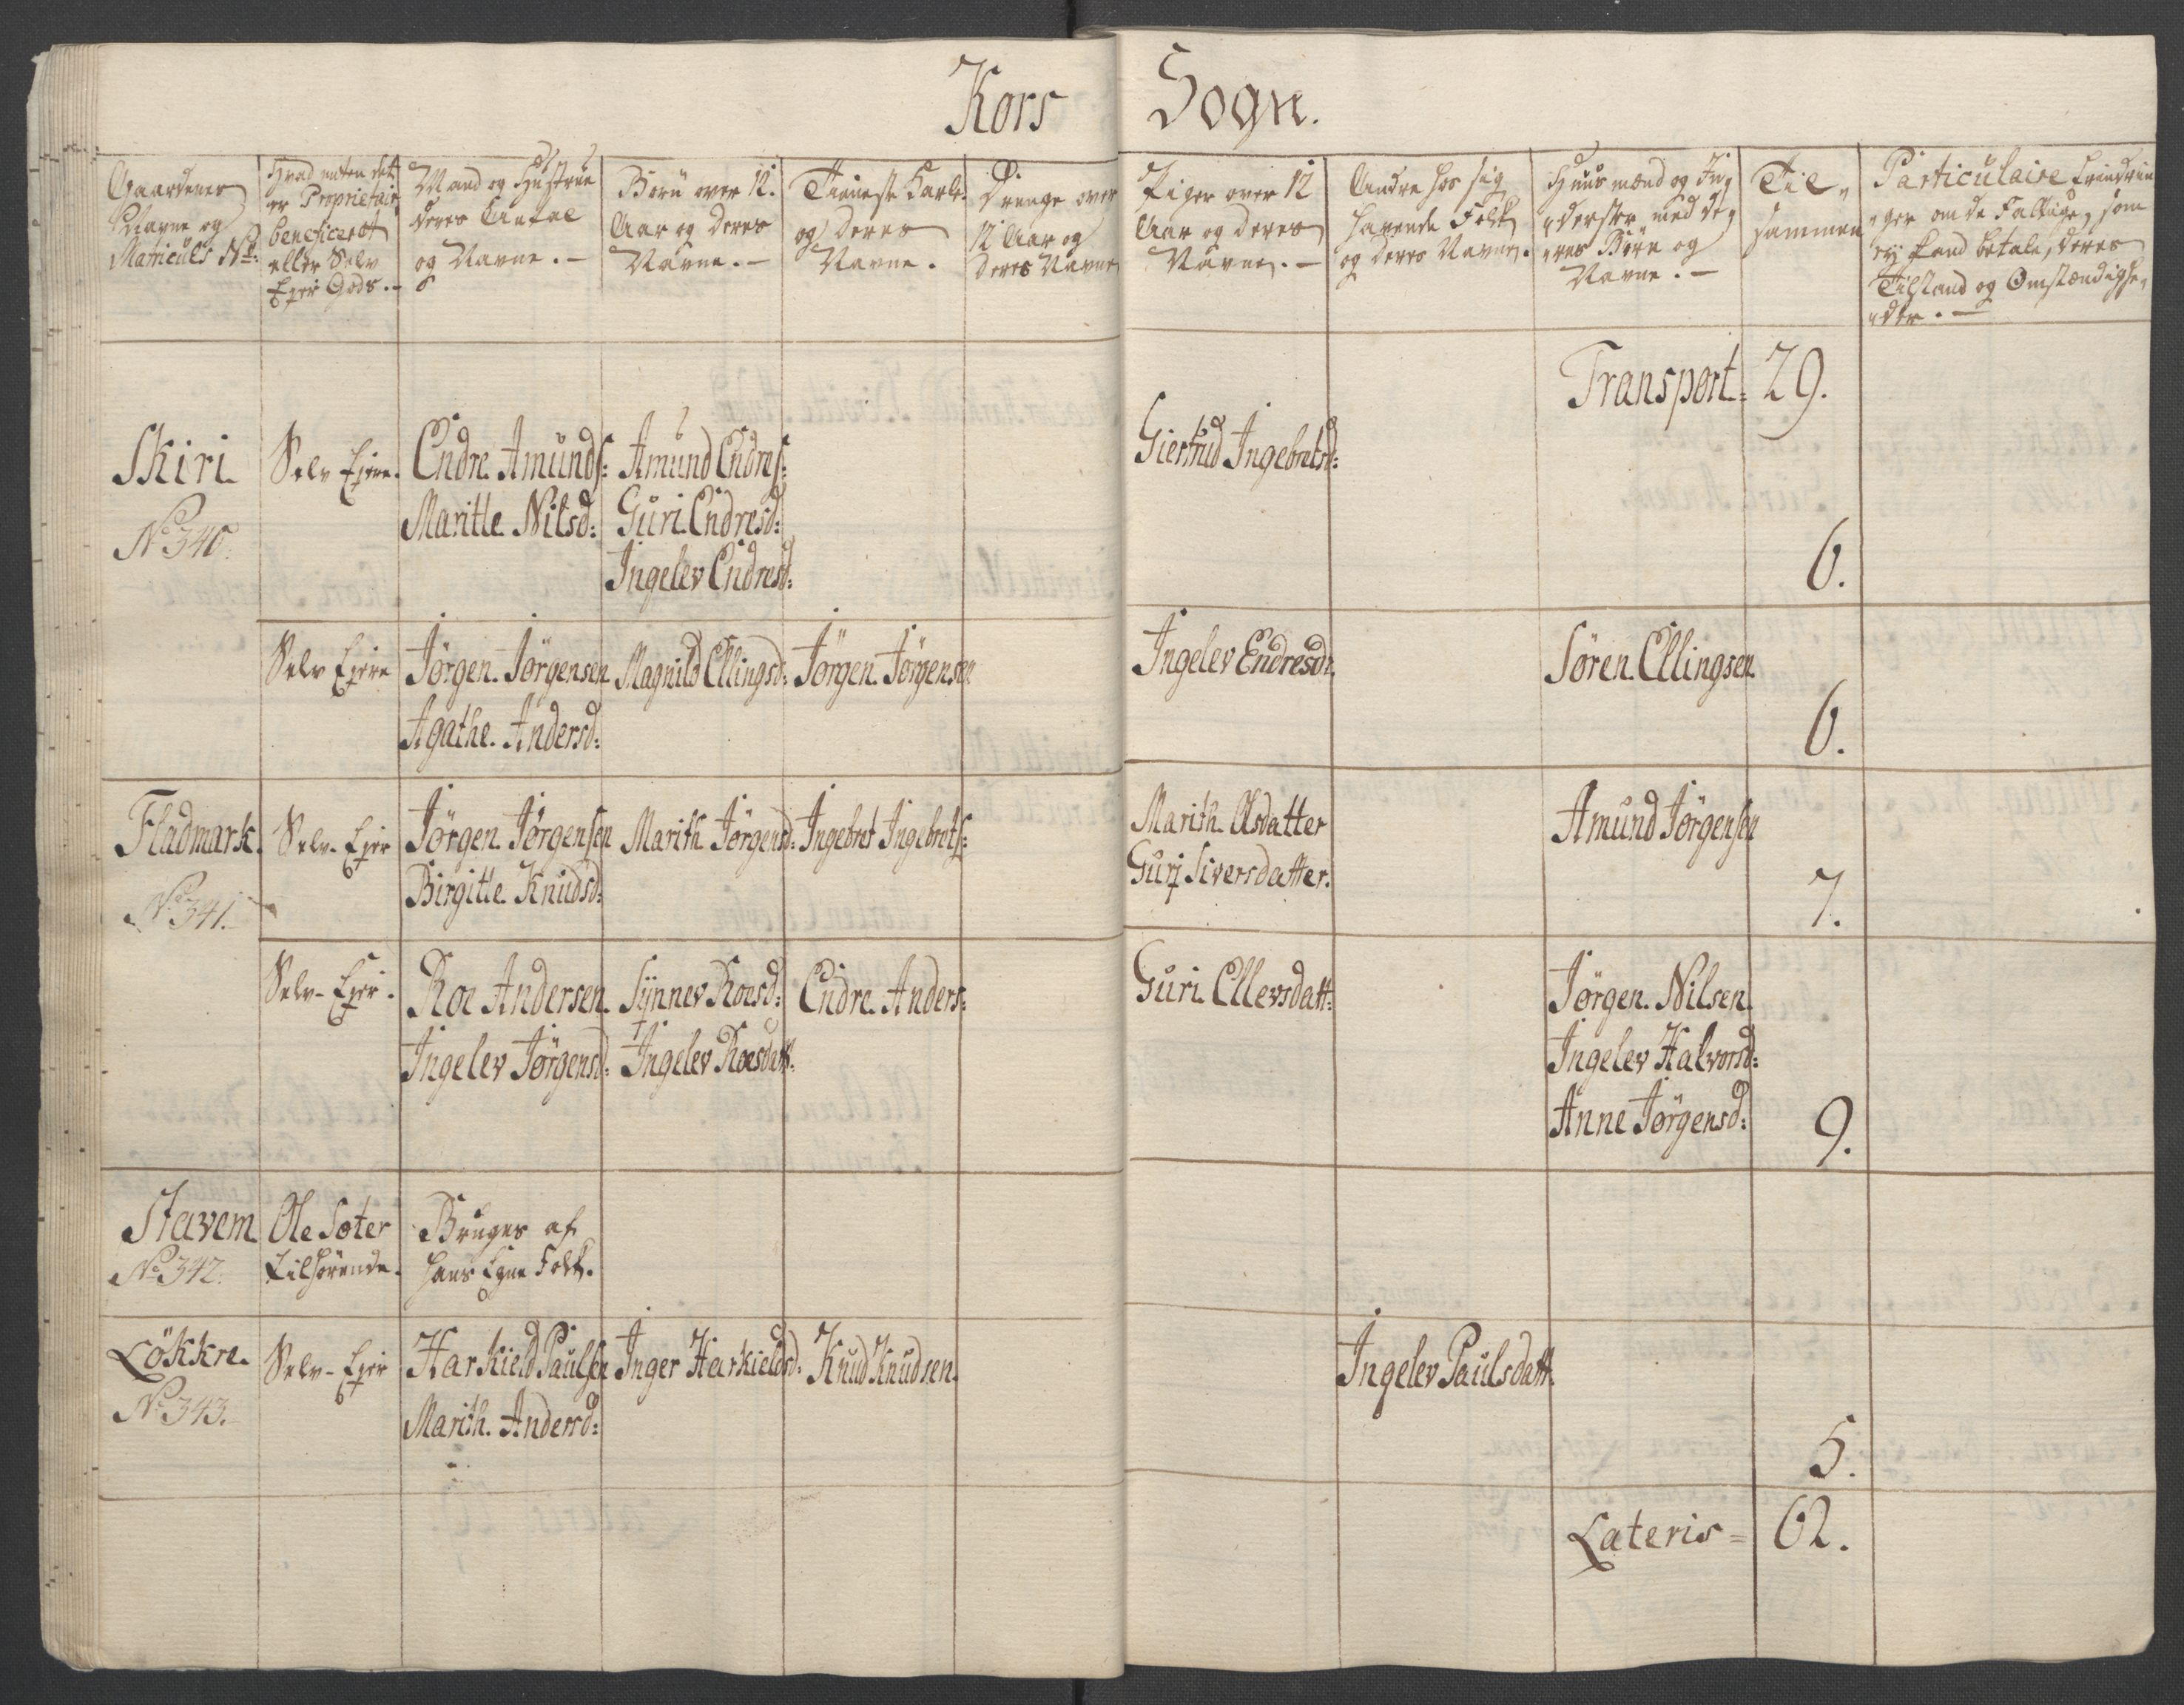 Kors Sogn.
Gaardenes
Navne og
Matriculs No:
Hvad enten det
er Proprietair,
beneficeret
eller Selv
Ejer Gods.-
Mand og Hustrue
deres Antal
og Navne.-
Børn over 12.
Aar og deres
Navne.-
Tieneste Karle
og deres
Navne.
Drenge over
12 Aar og
deres Navne
Piger over 12
Aar og deres
Navne.-
Andre hos sig
havende Folk
og deres Navne.
Huusmænd og In,,
,,derster med de,,
,,res Børn og
Navne.-
Til,,
sammen
Particulaire Erindrin
,,ger om de Fattige, som
ey kand betale, deres
Tilstand og Omstændighe,,
,,der.-
Transport: 29.
Skiri.
No 340.
Selv Ejere.
Endre Amunds:
Maritle Nilsd:
Amund Endres:
Guri Endresd:
Ingelev Endresd:
Giertrud Ingebretsd:
6.
Selv Ejere
Jörgen Jörgensen
Agathe Andersd:
Magnild Ellingsd:
Jörgen Jörgensen
Ingelev Endresd:
Søren Ellingsen
6.
Fladmark.
No 341.
Selv-Ejer
Jörgen Jørgensen
Birgitte Knudsd:
Marith Jørgensd:
Ingebret Ingebrets:
Marith Olsdatter
Guri Siversdatter.
Amund Jörgensen
7.
Selv-Ejer.
Roe Andersen
Ingelev Jørgensd:
Synnev Roesd:
Ingelev Roesdatt:
Endre Anders:
Guri Ellevsdatt:
Jørgen Nilsen
Ingelev Halvorsd:
Anne Jørgensd:
9.
Stavem
No 342.
Ole Soter
Tilhörende.
Bruges af
hans Egne Folk.
Lökkre.
No 343.
Selv-Ejer
Harkield Paulsen
Marith Andersd:
Inger Harkieldsd:
Knud Knudsen
Ingelev Paulsdatt:
5.
Lateris = 62.